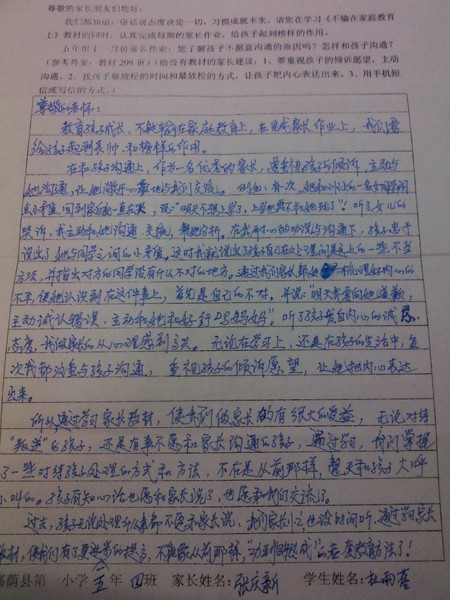 尊敬的家长朋友们您好：
我们都知道：俗话说态度决定一切，习惯成就未来。请您在学习《不输在家庭教育
上》教材的同时，认真完成每期的家长作业，给孩子起到榜样的作用。
五年级 1 月份家长作业：您了解孩子不愿意沟通的原因吗？怎样和孩子沟通？
（参考答案：教材 209 页）（给没有教材的家长建议：1、要重视孩子的倾诉愿望，主动
沟通。2、找孩子最放松的时间和最放松的方式，让孩子把内心表达出来。3、用手机短
信或写信的方式。）
尊敬的老师：
教育孩子成长，不能输在家庭教育上，在完成家长作业上，我们要
给孩子起到表帅和榜样作用。
在和孩子沟通上，作为一名优秀的家长，要重视孩子的倾诉，主动与
她沟通，让她敞开心扉地与我们交流。例如：有一次，她和小区上一名女同学闹
点小矛盾，回到家后就一直在哭，说："明天不想上学了，上学也再不和她玩了"！听了女儿的
哭诉，我主动和她沟通、交流，帮她分析，在我耐心的劝说与沟通下，孩子忠于
说出了她与同学之间的小矛盾。这时我就说出了孩子自己在处理问题上的一些不当
方法，并指出对方的同学没有什么不对的地方。通过我们家长帮她梳理好内心的
不平，使她认识到在这件事上，首先是自己的不对。并说："明天我要向她道歉，
主动诚认错误，主动和她和好行吗妈妈"。听了孩子发自内心的诚恳
态度，我做家长的从心理感到高兴。无论在学习上，还是在孩子的生活中，每
次我都注意与孩子沟通，重视孩子的倾诉愿望，让她把内心表达
出来。
所以通过学习家长教材，使我们做家长的有很大的受益，无论对待
"叛逆"的孩子，还是有事不愿和家长沟通的孩子，通过学习，我们掌握
了一些对待孩子处理的方式和方法，不在是从前那样，整天和孩子大呼
小叫的。孩子有知心话也愿和家长说了，也愿和我们交流了。
过去，孩子无论处理什么事都不愿和家长说，我们家长们也没时间听，通过学习家长
教材，使我们有了更进步的提高，不再像从前那样，
嘉荫县第 小学 五 年 四 班 家长姓名：张庆新 学生姓名：杜雨喜